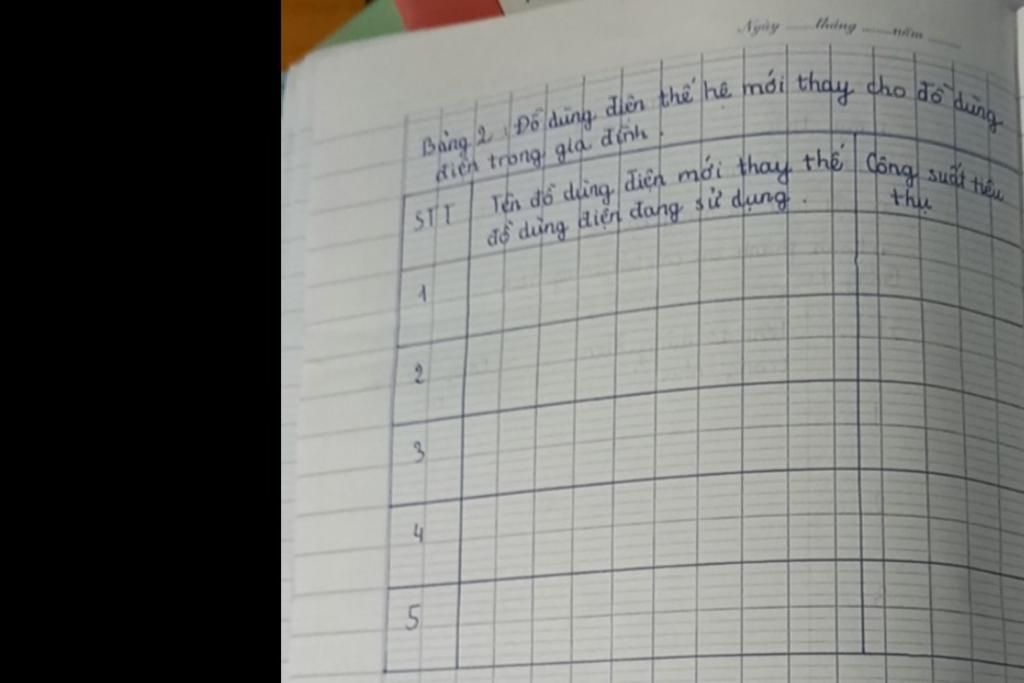 Ngày ......tháng ......năm ......
Bảng 2. Đồ dùng điện thế hệ mới thay cho đồ dùng
điện trong gia đình.
STT
Tên đồ dùng điện mới thay thế
đồ dùng điện đang sử dụng.
Công suất tiêu
thụ
1
2
3
4
5